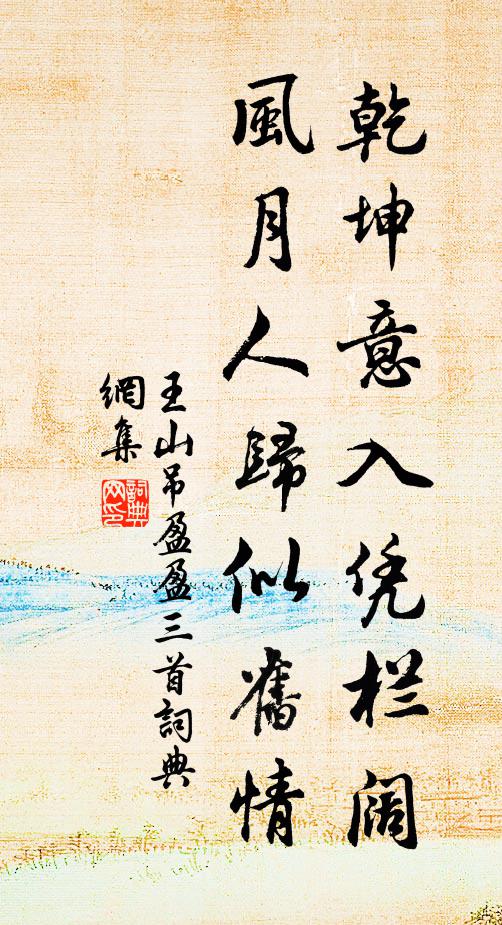 乾坤意入凭栏阔
風月人歸似舊情
王山吊盈盈三首詞典
網集
詞典
网印